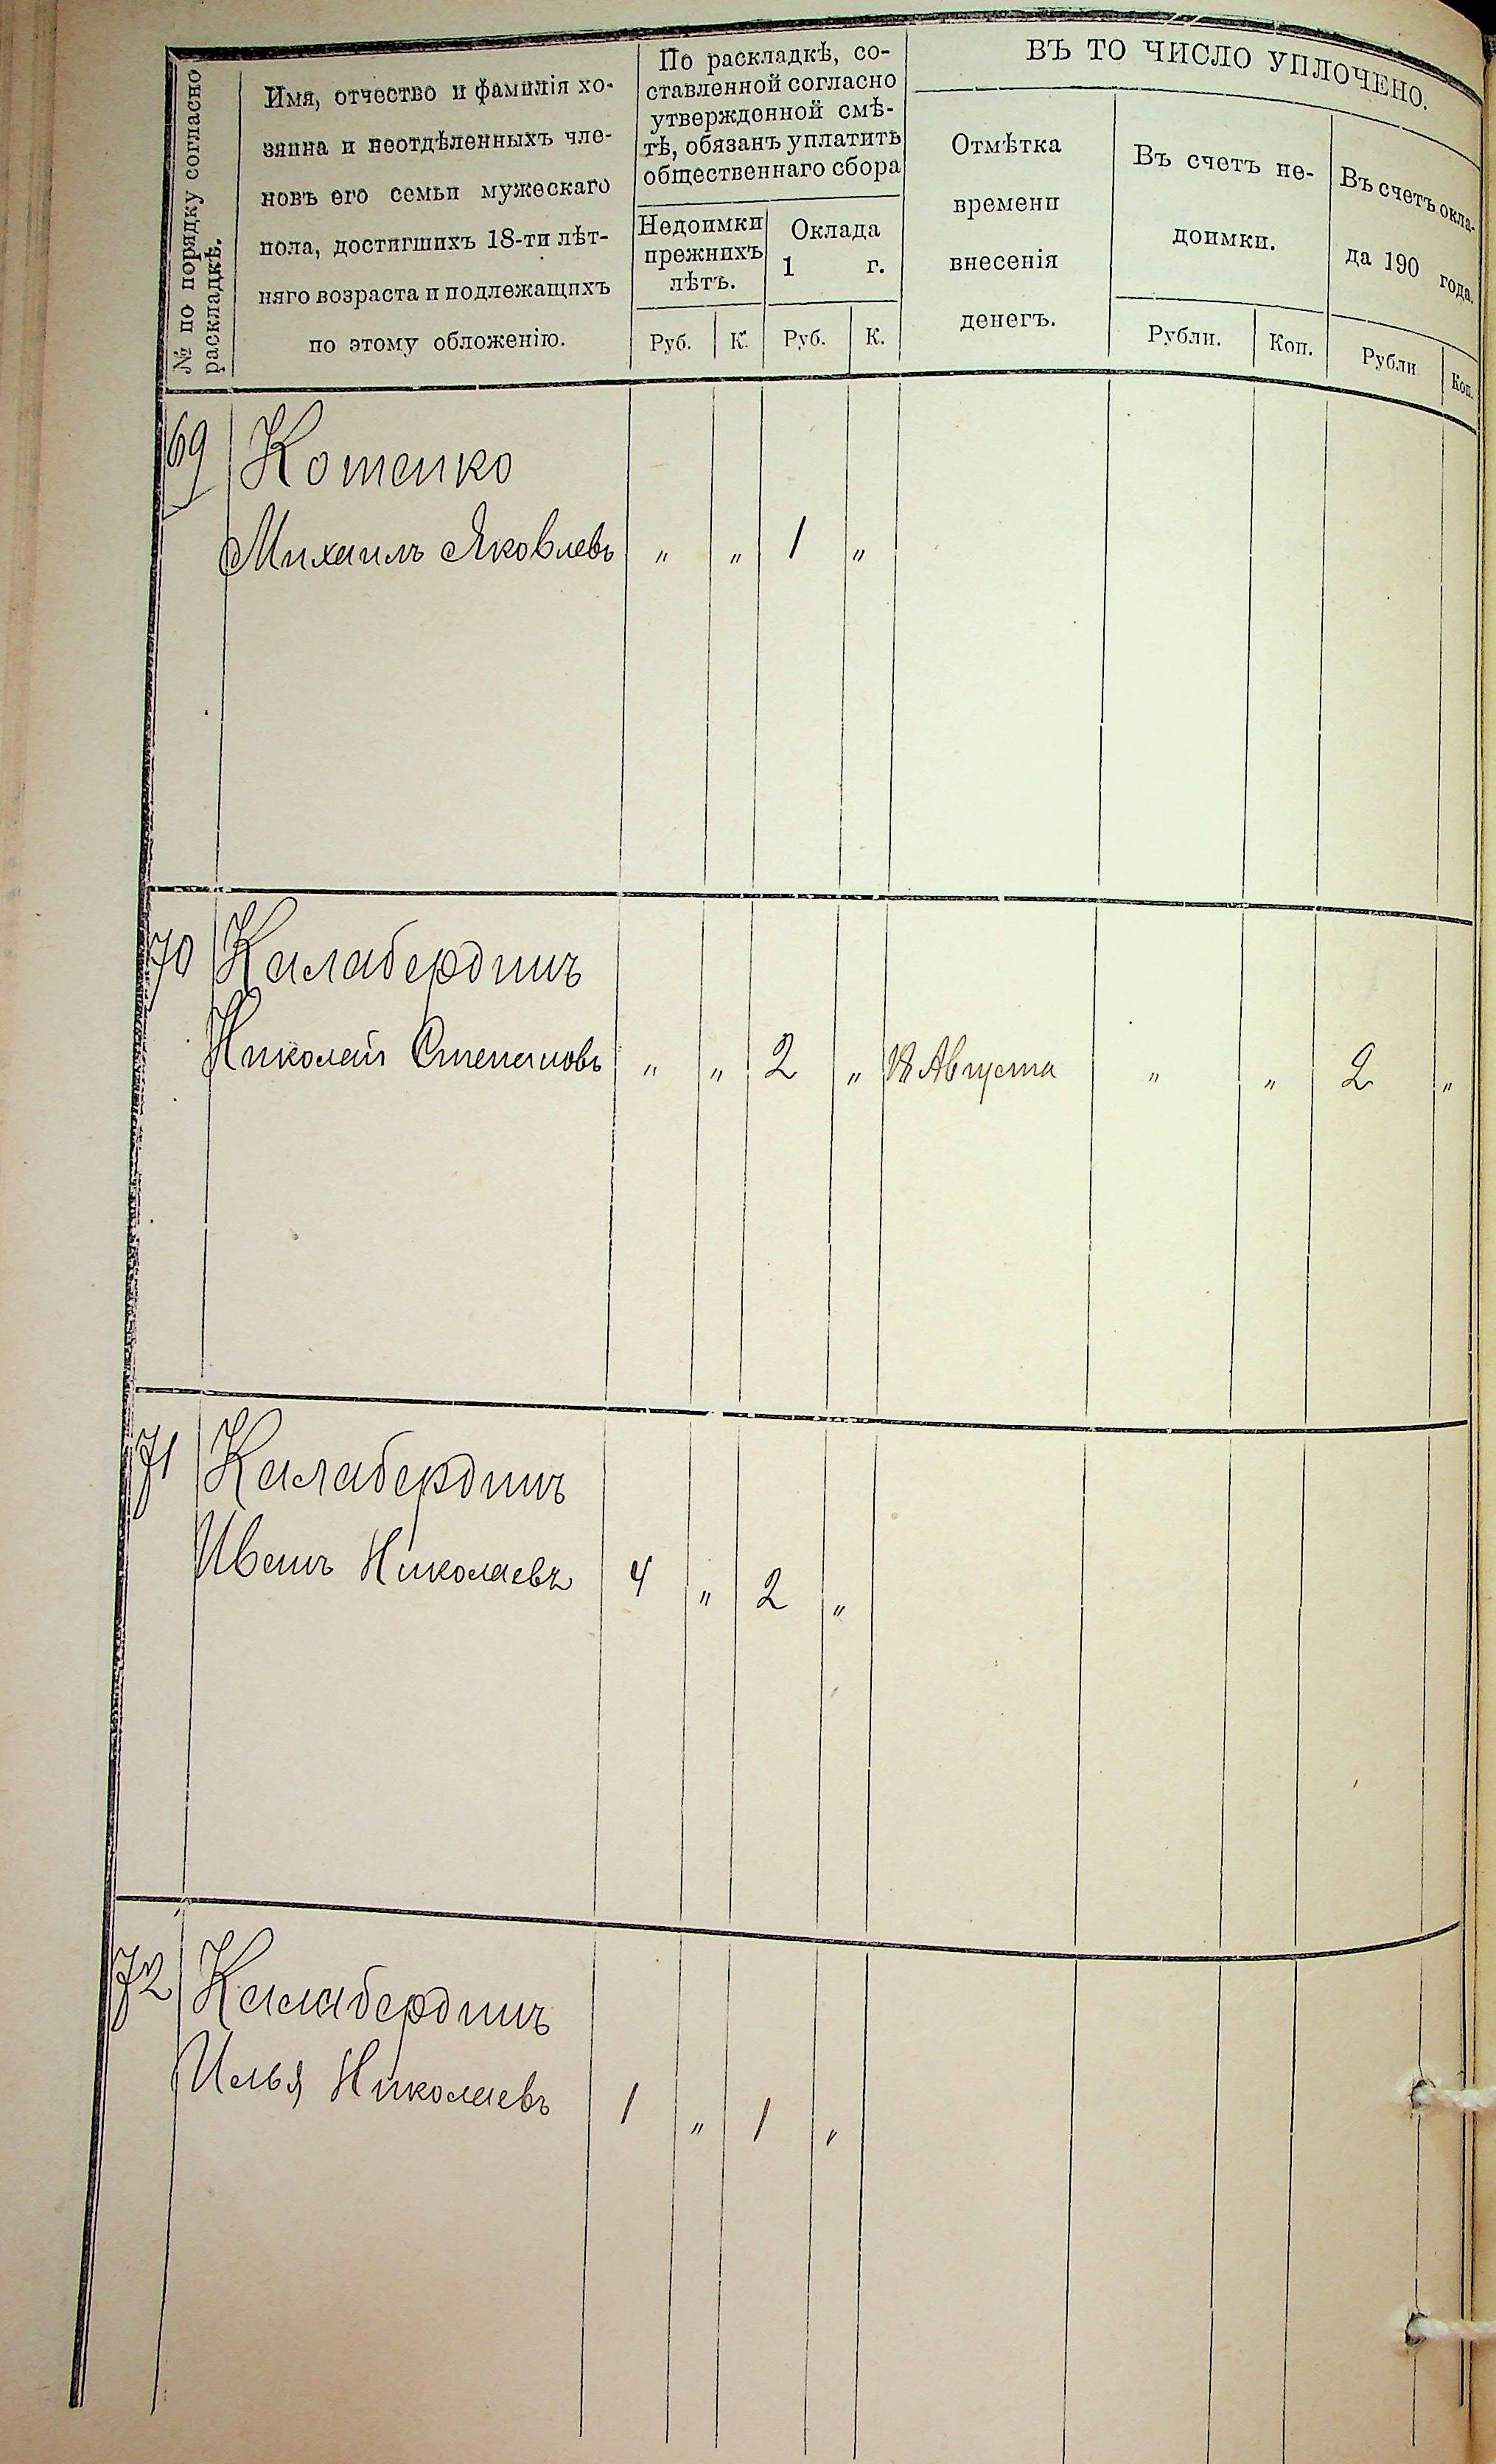 № по порядку согласно
раскладкѣ.
Имя, отчество и фамилія хо-
зяина и неотдѣленныхъ чле-
новъ его семьи мужескаго
пола, достигшихъ 18-ти лѣт-
няго возраста и подлежащихъ
по этому обложенію.
По раскладкѣ, со-
ставленной согласно
утвержденной смѣ-
тѣ, обязанъ уплатить
общественнаго сбора
Недоимки
прежнихъ
лѣтъ.
Оклада
1 г.
Руб. К. Руб. К.
ВЪ ТО ЧИСЛО УПЛОЧЕНО.
Отмѣтка
времени
внесенія
денегъ.
Въ счетъ не-
доимки.
Рубли. Коп.
Въ счетъ окла-
да 190 года.
Рубли Коп.
69 Котенко
Михаилъ Яковлевъ " " 1 "
70 Калабердинъ
Николай Степановъ " " 2 " Августа " " 2 "
71 Калабердинъ
Иванъ Николаевъ 4 " 2 "
72 Калабердинъ
Илья Николаевъ 1 " 1 "